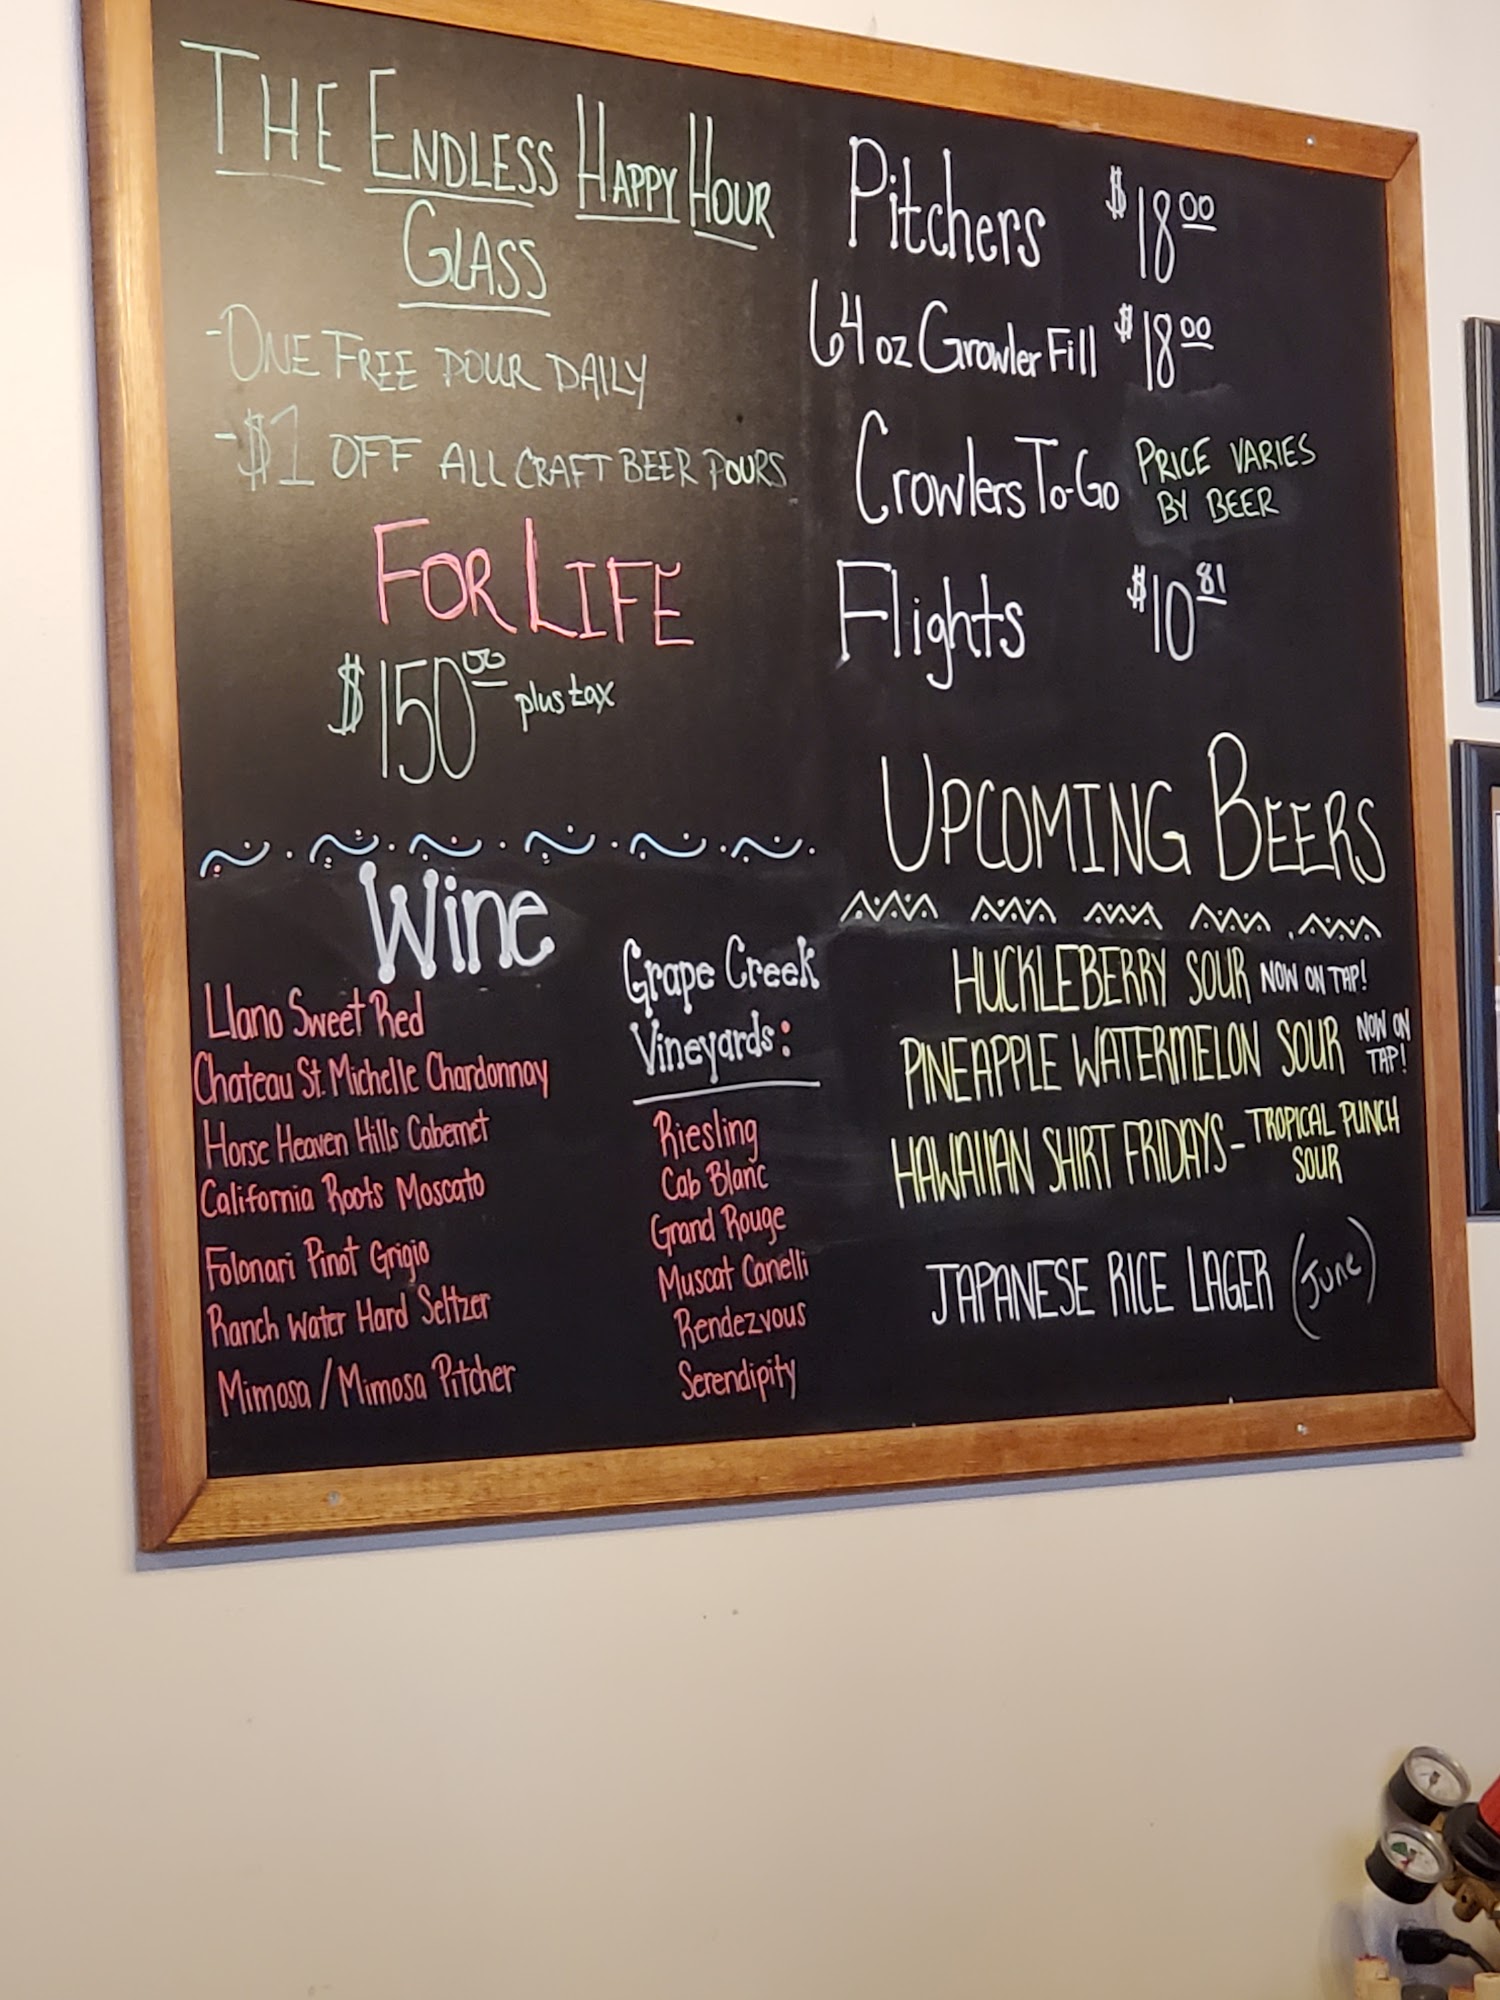 THE ENDLESS HAPPY HOUR
GLASS
-ONE FREE POUR DAILY
-$1 OFF ALL CRAFT BEER POURS
FOR LIFE
$150.00 plus tax
Wine
Llano Sweet Red
Chateau St. Michelle Chardonnay
Horse Heaven Hills Cabernet
California Roots Moscato
Folonari Pinot Grigio
Ranch Water Hard Seltzer
Mimosa / Mimosa Pitcher
Grape Creek
Vineyards:
Riesling
Cab Blanc
Grand Rouge
Muscat Canelli
Rendezvous
Serendipity
Pitchers $18.00
64 oz Growler Fill $18.00
Crowlers To-Go PRICE VARIES
BY BEER
Flights $10.81
UPCOMING BEERS
HUCKLEBERRY SOUR NOW ON TAP!
PINEAPPLE WATERMELON SOUR NOW ON
TAP!
HAWAIIAN SHIRT FRIDAYS - TROPICAL PUNCH
SOUR
JAPANESE RICE LAGER (June)